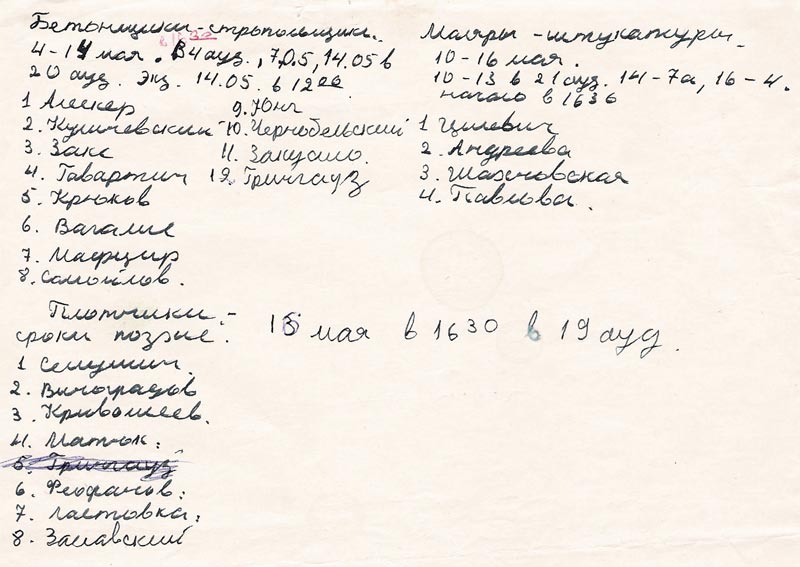 Бетонщики-стропольщики.
в 18 30
4-14 мая. В 4 ауд., 7.05, 14.05 в
20 ауд. экз. 14.05. в 12 00
1 Алскер
2. Кушчевский
3. Закс
4. Гаварткин
5. Крюков
6. Вагалис
7. Мафцир
8. Самойлов.
9. Юнг
10. Чернобельский
11. Закушло.
12. Гринчауз
Маляры - штукатуры.
10-16 мая.
10-13 в 21 ауд. 14-7а, 16-4.
начало в 1630
1 Цилевич
2. Андреева
3. Шахновская
4. Павлова.
Плотники:-
сроки позже: 15 мая в 1630 в 19 ауд.
1 Семушин.
2. Виноградов
3. Кривошеев.
4. Матюк.
5. Гринчауз
6. Феофанов.
7. Ластовка.
8. Заславский